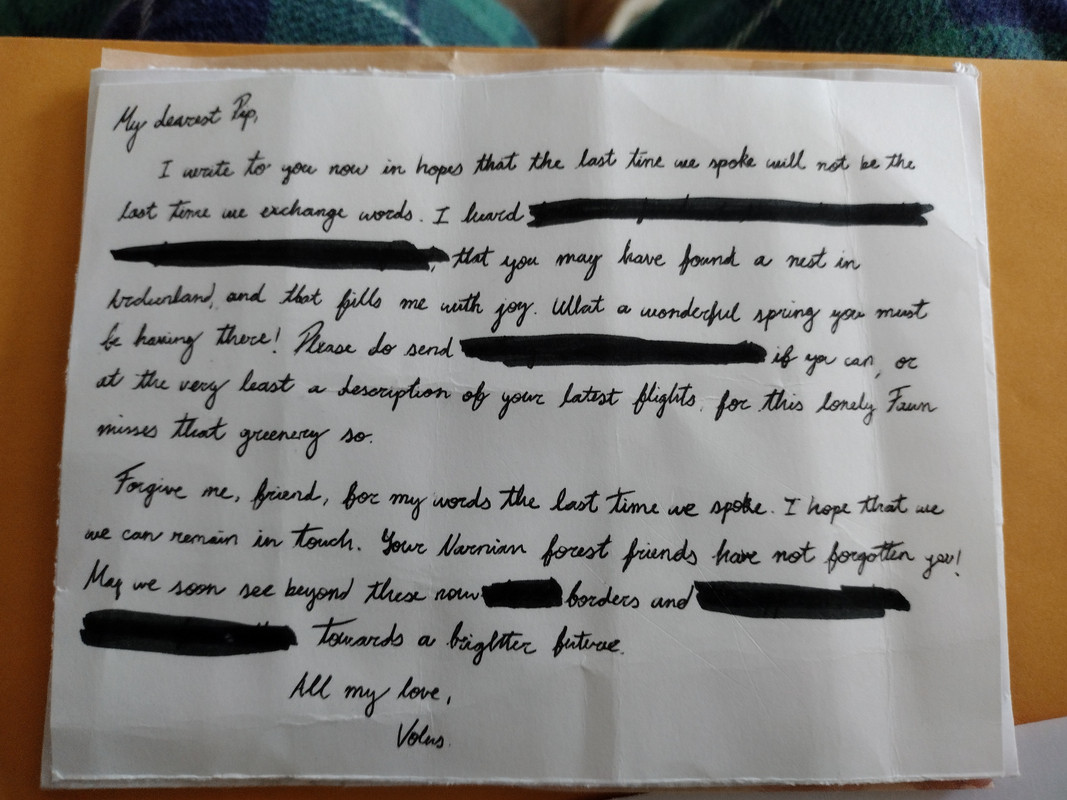 My dearest Pip,
I write to you now in hopes that the last time we spoke will not be the
last time we exchange words. I heard
, that you may have found a nest in
and that fills me with joy. What a wonderful spring you must
be having there! Please do send if you can, or
at the very least a description of your latest flights, for this lonely Faun
misses that greenery so.
Forgive me, friend, for my words the last time we spoke. I hope that we
we can remain in touch. Your Narnian forest friends have not forgotten you!
May we soon see beyond these now borders and
towards a brighter future.
All my love,
Volus.